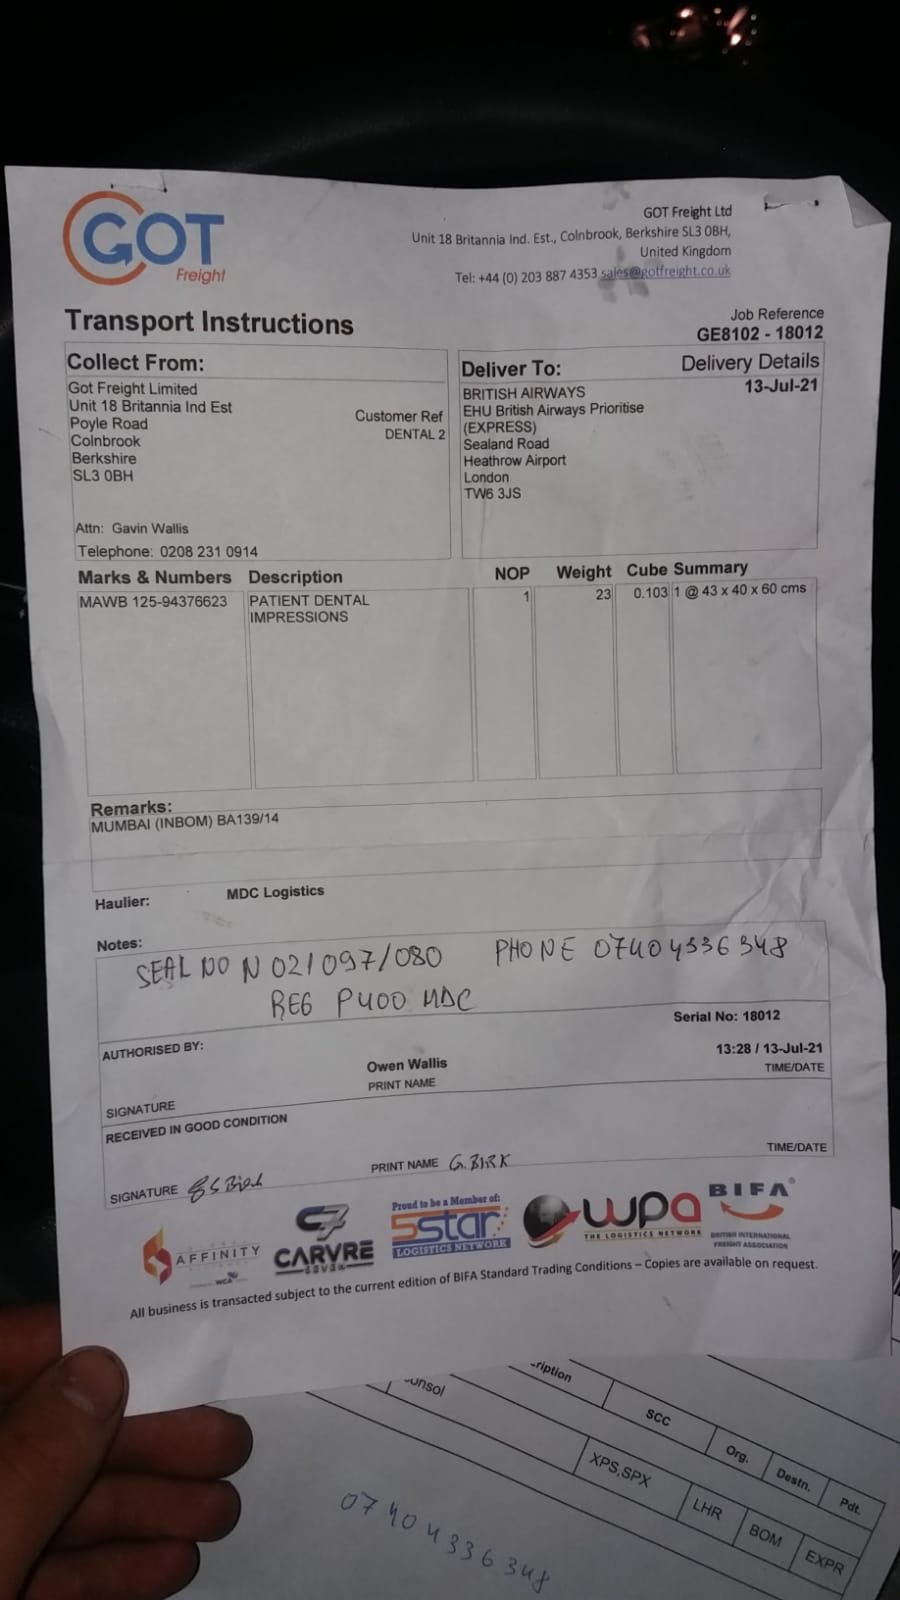 GOT
Freight
GOT Freight Ltd
Unit 18 Britannia Ind. Est., Colnbrook, Berkshire SL3 0BH,
United Kingdom
Tel: +44 (0) 203 887 4353 sales@gotfreight.co.uk
Transport Instructions
Job Reference
GE8102 - 18012
Collect From:
Got Freight Limited
Unit 18 Britannia Ind Est
Poyle Road
Colnbrook
Berkshire
SL3 0BH
Customer Ref
DENTAL 2
Attn: Gavin Wallis
Telephone: 0208 231 0914
Deliver To:
Delivery Details
13-Jul-21
BRITISH AIRWAYS
EHU British Airways Prioritise
(EXPRESS)
Sealand Road
Heathrow Airport
London
TW6 3JS
Marks & Numbers Description NOP Weight Cube Summary
MAWB 125-94376623 PATIENT DENTAL 1 23 0.103 1 @ 43 x 40 x 60 cms
IMPRESSIONS
Remarks:
MUMBAI (INBOM) BA139/14
Haulier: MDC Logistics
Notes:
SEAL NO N 021097/080 PHONE 07404336348
REG P400 MDC
Serial No: 18012
AUTHORISED BY:
Owen Wallis 13:28 / 13-Jul-21
SIGNATURE PRINT NAME TIME/DATE
RECEIVED IN GOOD CONDITION
SIGNATURE PRINT NAME G. BIRK TIME/DATE
AFFINITY
WCA
C7
CARVRE
SEVEN
Proud to be a Member of:
5star
LOGISTICS NETWORK
wpa
THE LOGISTICS NETWORK
BIFA
BRITISH INTERNATIONAL
FREIGHT ASSOCIATION
All business is transacted subject to the current edition of BIFA Standard Trading Conditions – Copies are available on request.
ription
onsol
SCC Org. Destn. Pdt.
XPS,SPX LHR BOM EXPR
07404336348